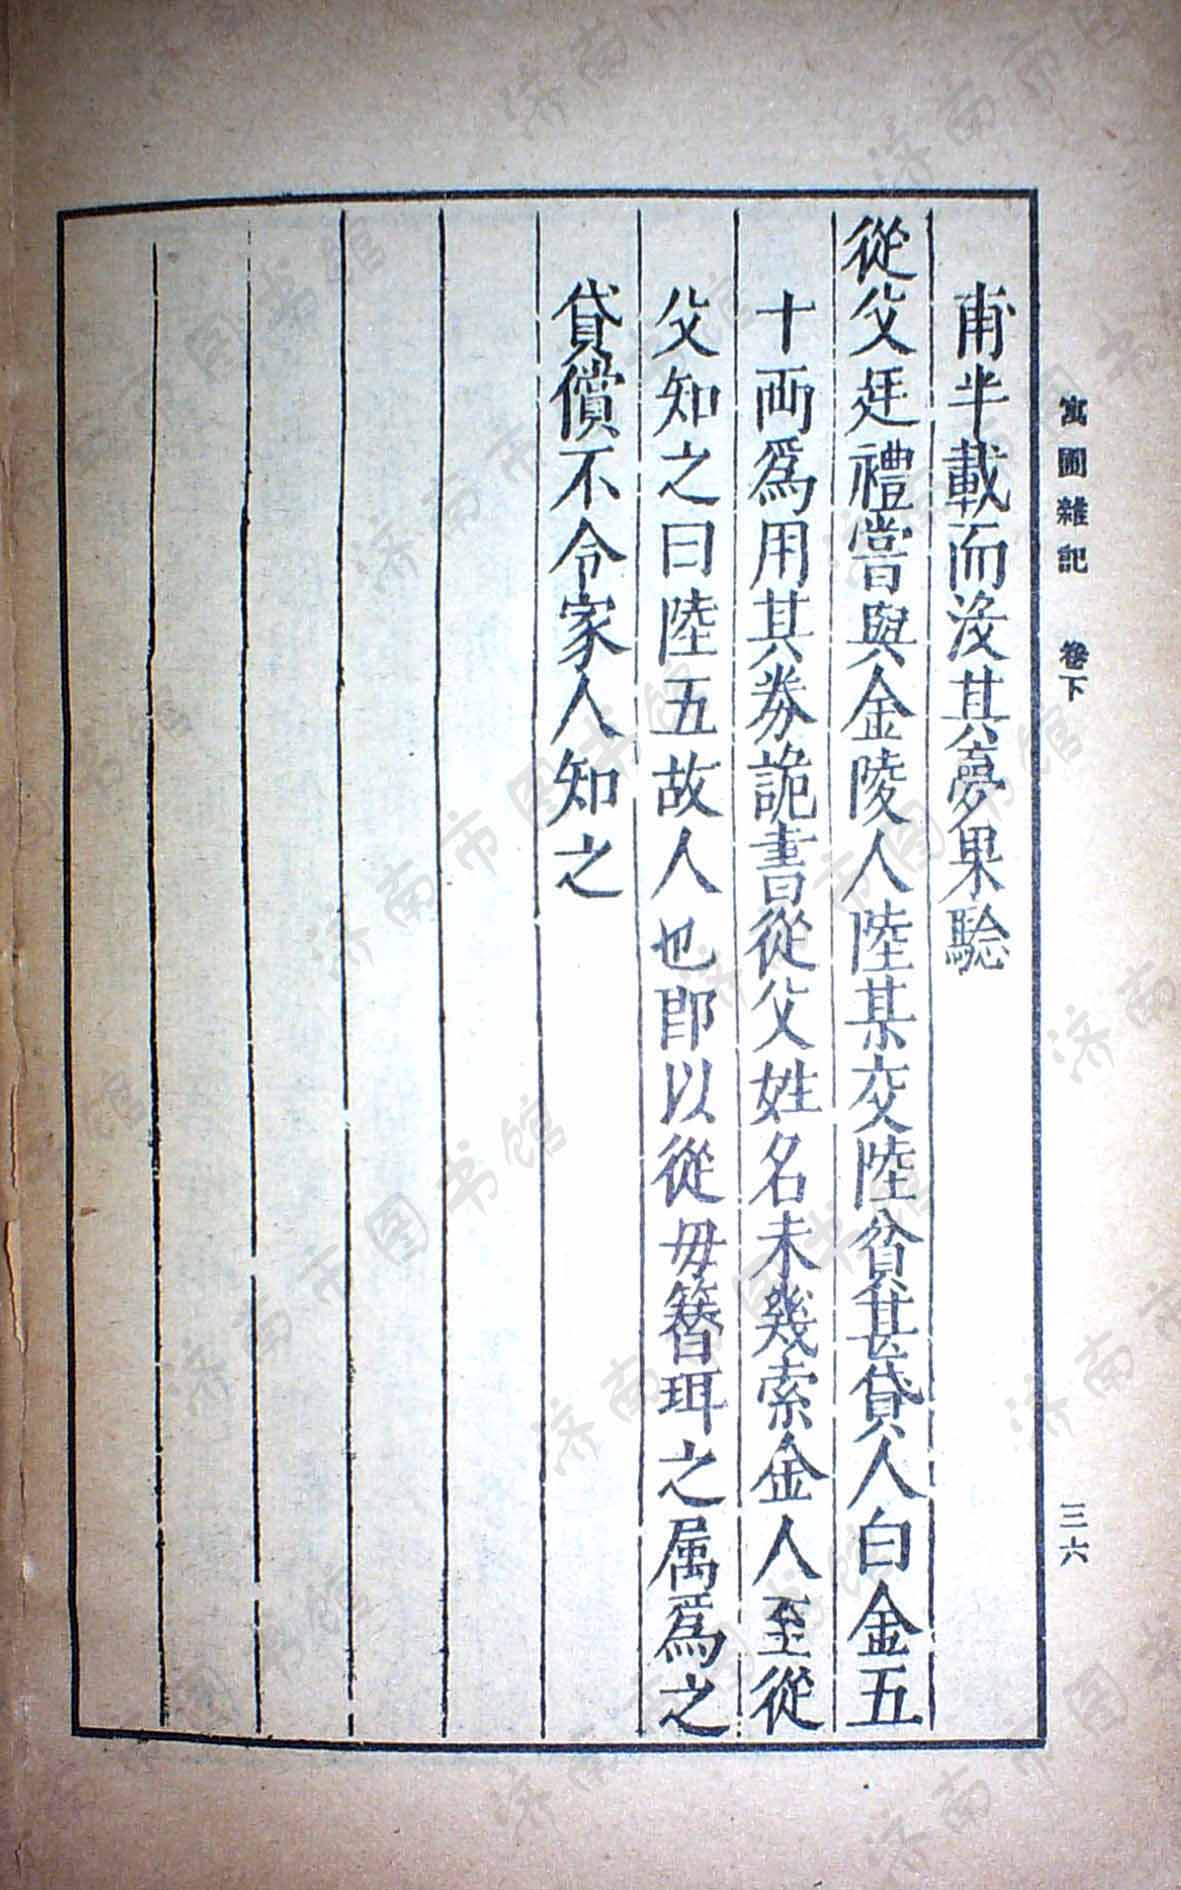 寓圃雜記 卷下
三六
甫半載而没其夢果驗
從父廷禮嘗與金陵人陸某交陸貧甚貸人白金五
十兩爲用其券詭書從父姓名未幾索金人至從
父知之曰陸五故人也即以從母簪珥之属爲之
貸償不令家人知之
济南市图书馆